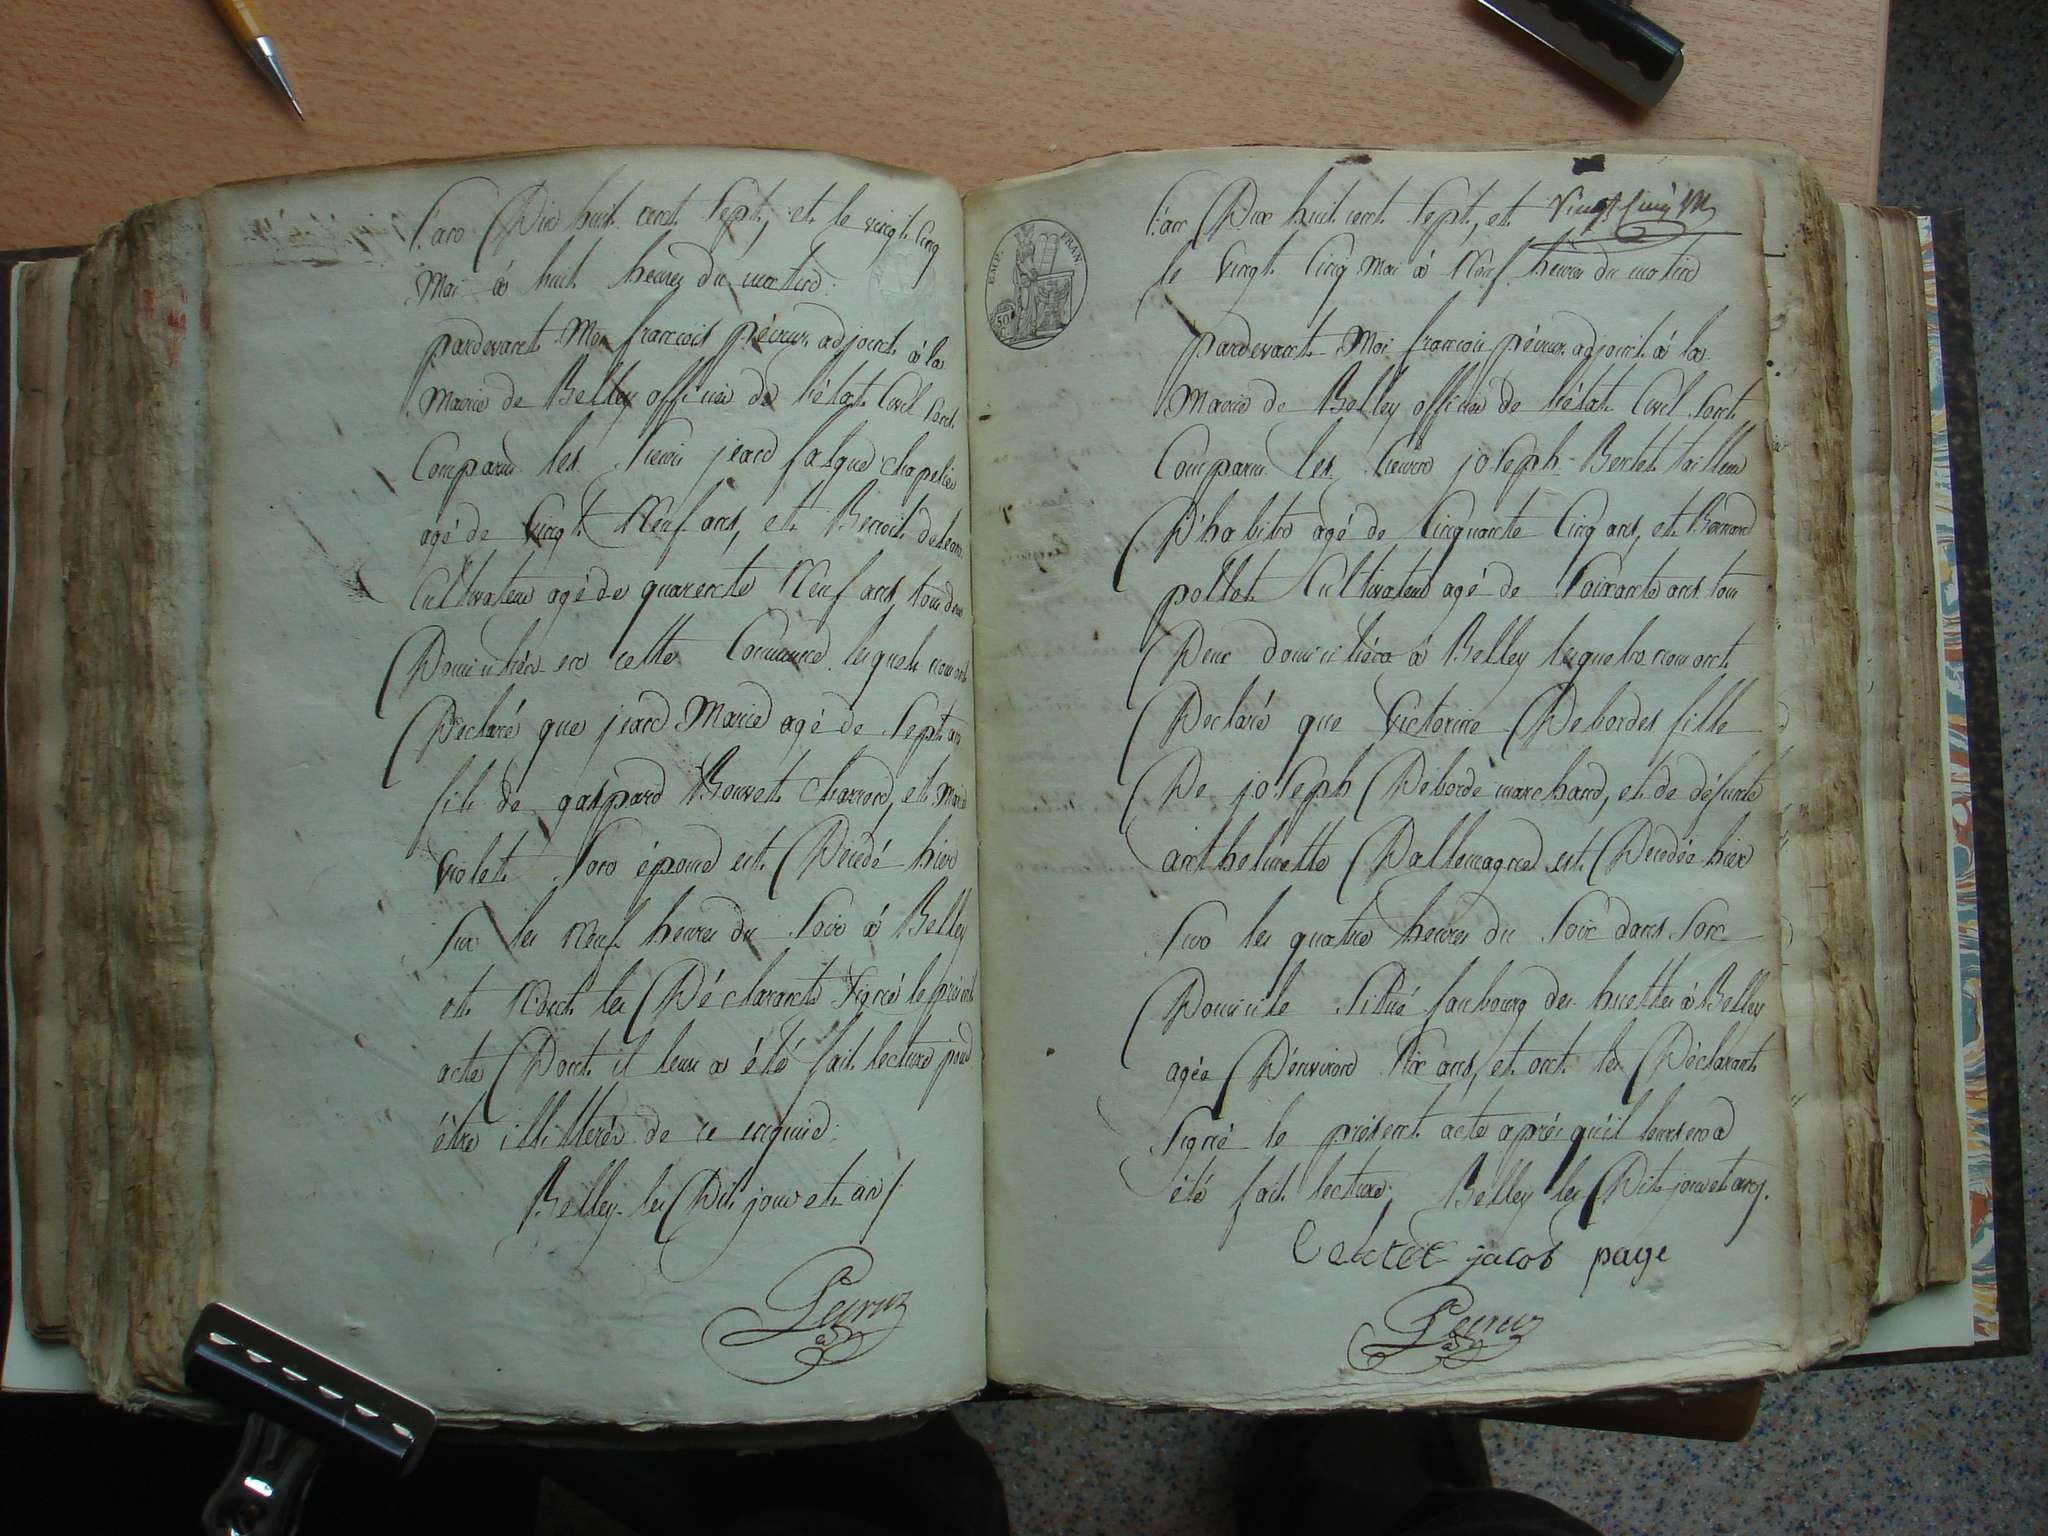 L'an Dix huit cent Sept, et le vingt Cinq
Mai à huit heures du matin.
pardevant Moi françois Pécruz adjoint à la
Mairie de Belley officier de l'état Civil Sont
Comparu les Sieurs jean falque chapelier
agé de Vingt Neuf ans, et Benoit
Cultivateur agé de quarente Neuf ans tou deux
Domiciliés en cette Commune lesquels nous ont
Déclaré que jean Marie agé de Sept an
fils de gaspard Bouvet charron, et Marie
Violet Son épouse est Décédé hier
Sur les Neuf heures du Soir à Belley
et N'ont les Déclarants Signé le présent
acte Dont il leur a été fait lecture pour
être illitterés de ce enquis.
Belley les Dits jour et an /
Pecruz
EMP. FRAN.
50
L'an Dix huit cent Sept, et Vingt Cinq M
le Vingt Cinq Mai à Neuf heures du matin
pardevant Moi françois pécruz adjoint à la
Mairie de Belley officier de l'état Civil Sont
Comparu les Sieurs joseph Bertet tailleur
D'habits agé de Cinquante Cinq ans, et Bernard
pollet Cultivateur agé de Soixante ans tou
Deux domiciliés à Belley lesquels nous ont
Déclaré que Victorine Debordes fille
De joseph Deborde marchand, et de défunte
anthelmette Dallemagne est Décédée hier
Sur les quatre heures du Soir dans Son
Domicile Situé faubourg des huettes à Belley
agée D'environ Six ans, et ont les Déclarants
Signé le présent acte après qu'il leurs en a
été fait lecture, Belley les Dits jour et an.
jacob page
Pecruz